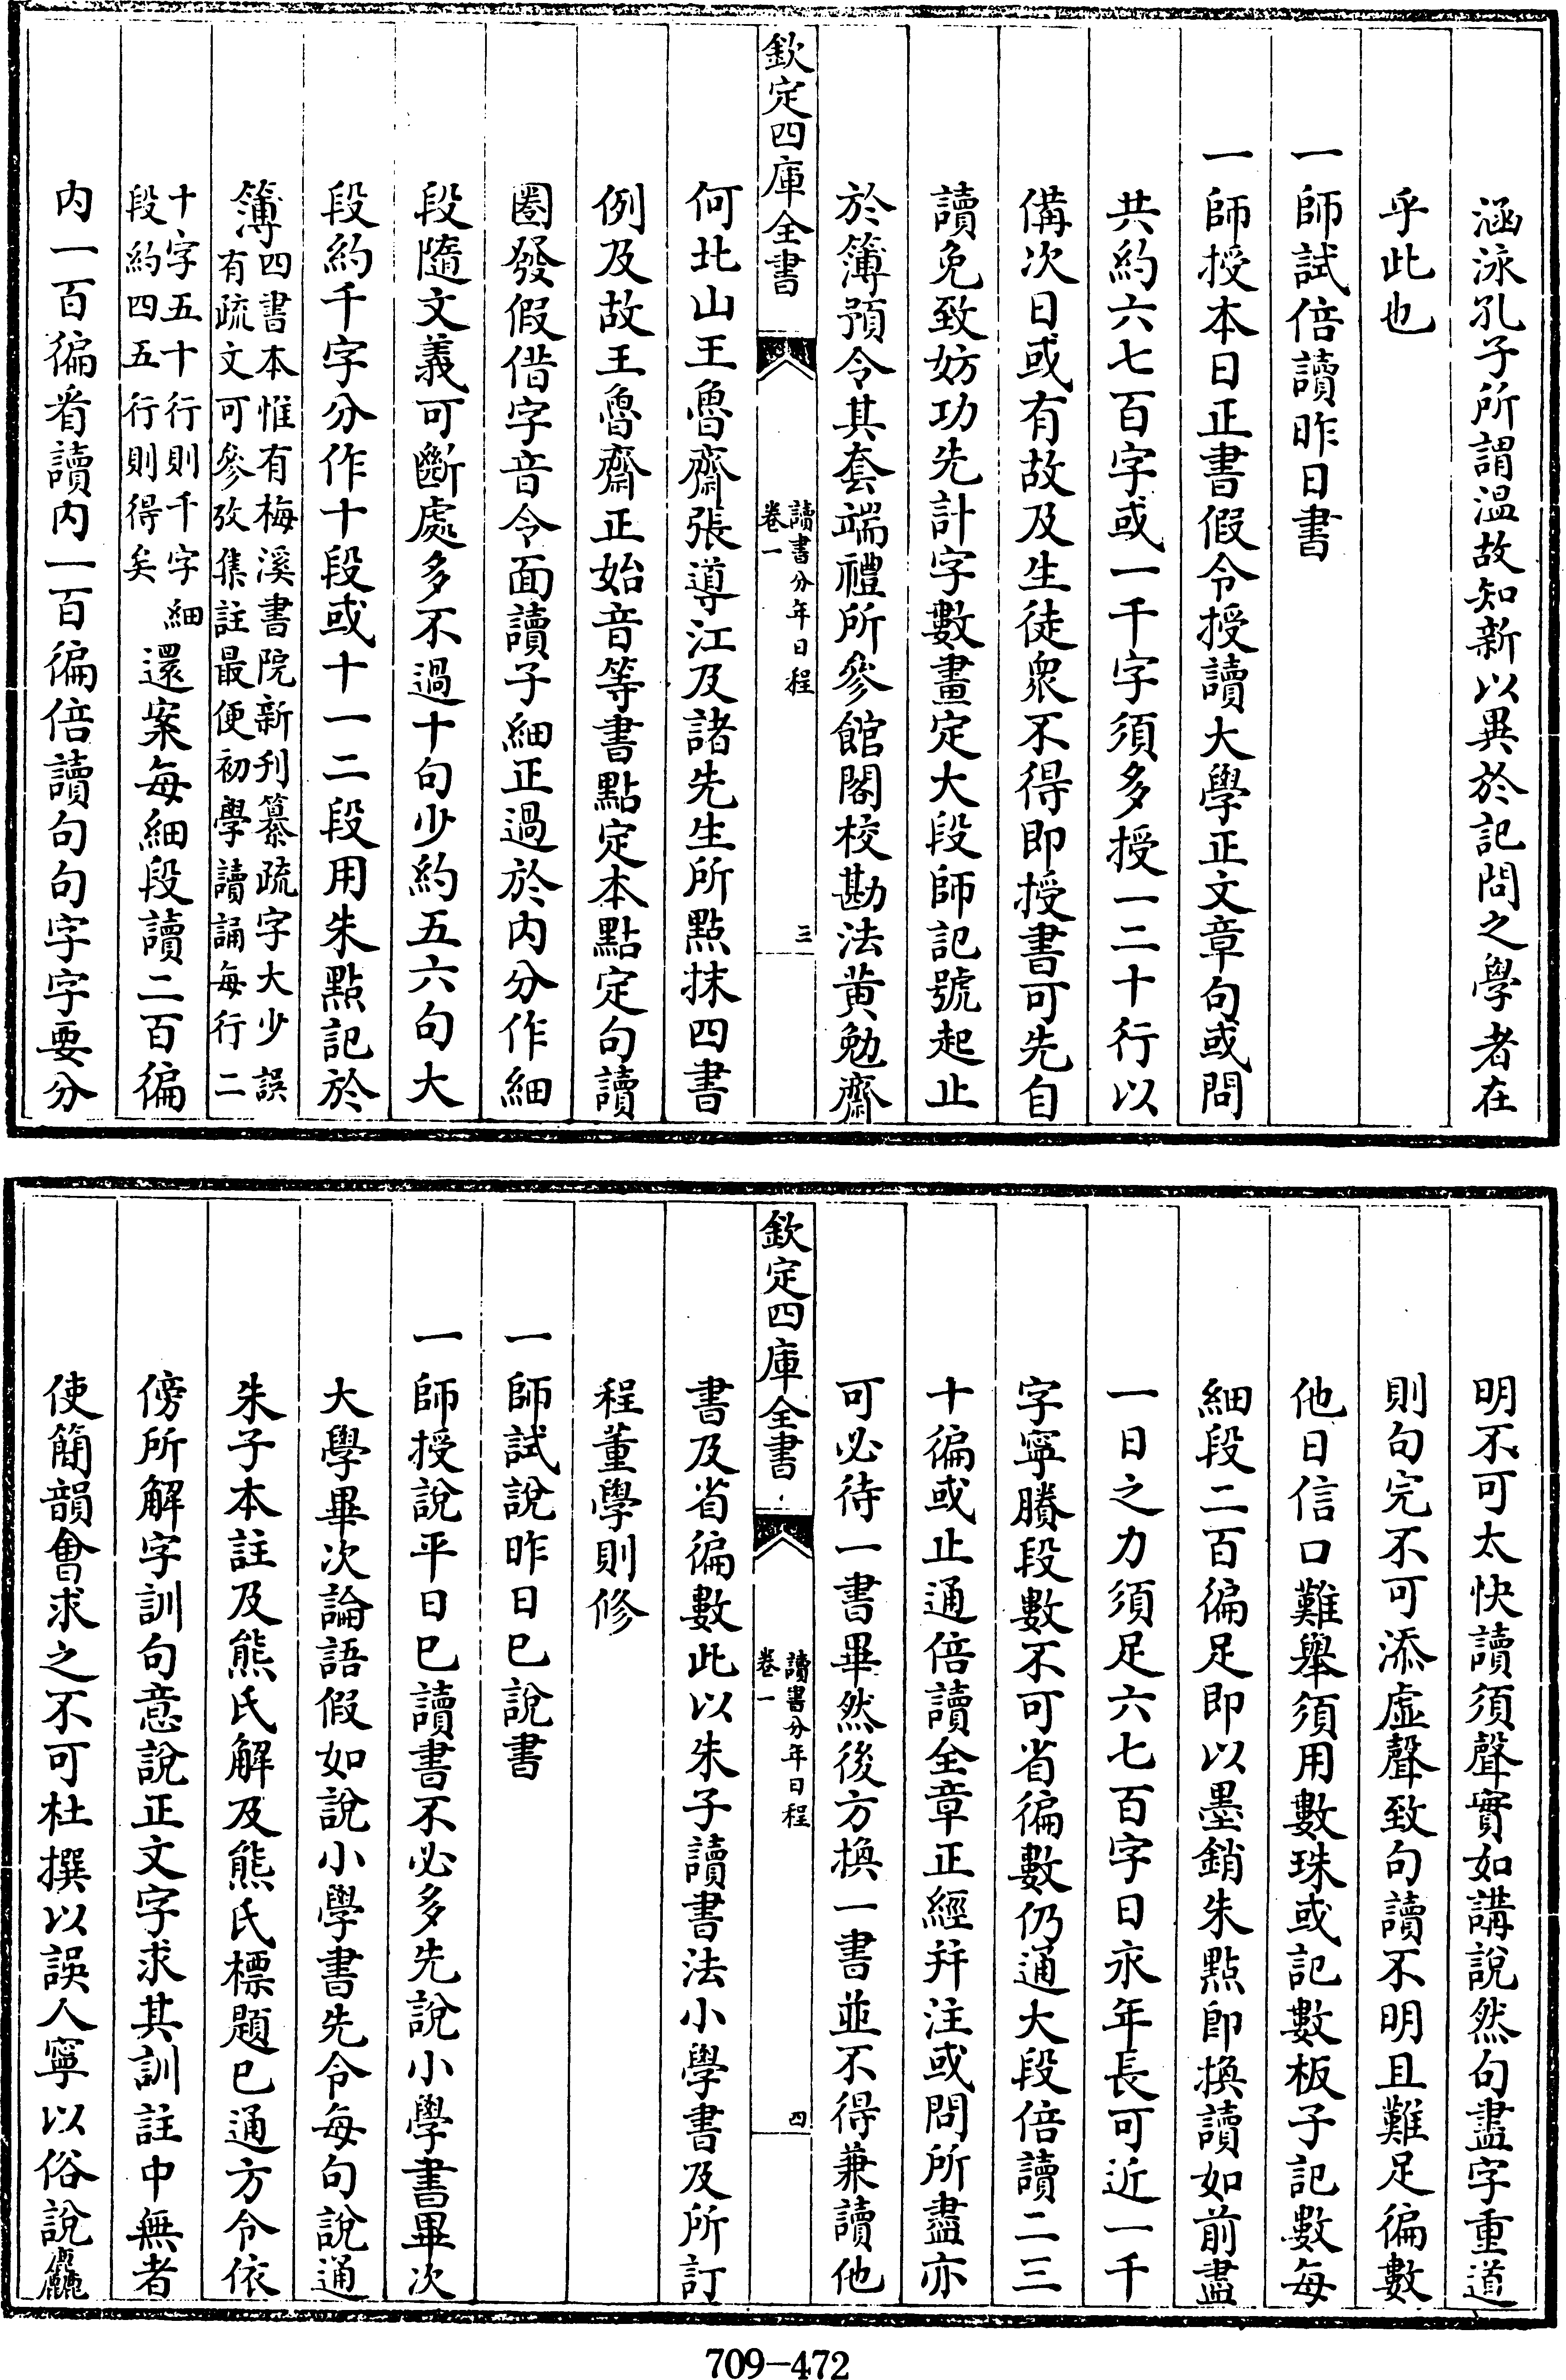 涵泳孔子所謂溫故知新以異於記問之學者在
乎此也
一師試倍讀昨日書
一師授本日正書假令授讀大學正文章句或問
共約六七百字或一千字須多授一二十行以
備次日或有故及生徒衆不得即授書可先自
讀免致妨功先計字數畫定大段師記號起止
於簿預令其套端禮所參館閣校勘法黄勉齋
欽定四庫全書
讀書分年日程
卷一
三
何北山王魯齋張導江及諸先生所點抹四書
例及故王魯齋正始音等書點定本點定句讀
圈發假借字音令面讀子細正過於内分作細
段隨文義可斷處多不過十句少約五六句大
段約千字分作十段或十一二段用朱點記於
簿四書本惟有梅溪書院新刋纂疏字大少誤
有疏文可參攷集註最便初學讀誦每行二
十字五十行則千字細
段約四五行則得矣
還案每細段讀二百徧
内一百徧㸔讀内一百徧倍讀句句字字要分
明不可太快讀須聲實如講說然句盡字重道
則句完不可添虛聲致句讀不明且難足徧數
他日信口難舉須用數珠或記數板子記數每
細段二百徧足即以墨銷朱點即換讀如前盡
一日之力須足六七百字日永年長可近一千
字寧賸段數不可省徧數仍通大段倍讀二三
十徧或止通倍讀全章正經并注或問所盡亦
可必待一書畢然後方換一書並不得兼讀他
欽定四庫全書
讀書分年日程
卷一
四
書及省徧數此以朱子讀書法小學書及所訂
程董學則修
一師試說昨日已說書
一師授說平日已讀書不必多先說小學書畢次
大學畢次論語假如說小學書先令每句說通
朱子本註及熊氏解及熊氏標題已通方令依
傍所解字訓句意說正文字求其訓註中無者
使簡韻會求之不可杜撰以誤人寧以俗說麤
709-472